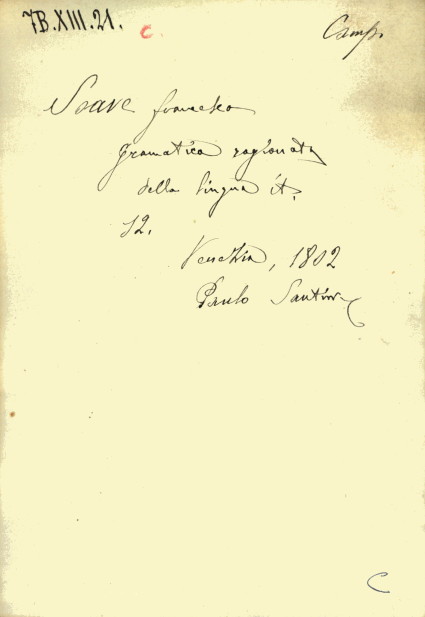 7B.XIII.21. C
Camp.
Soave francesco
gramatica ragionata
della lingua it.
12.
Venezia, 1802
Paulo Santini
C